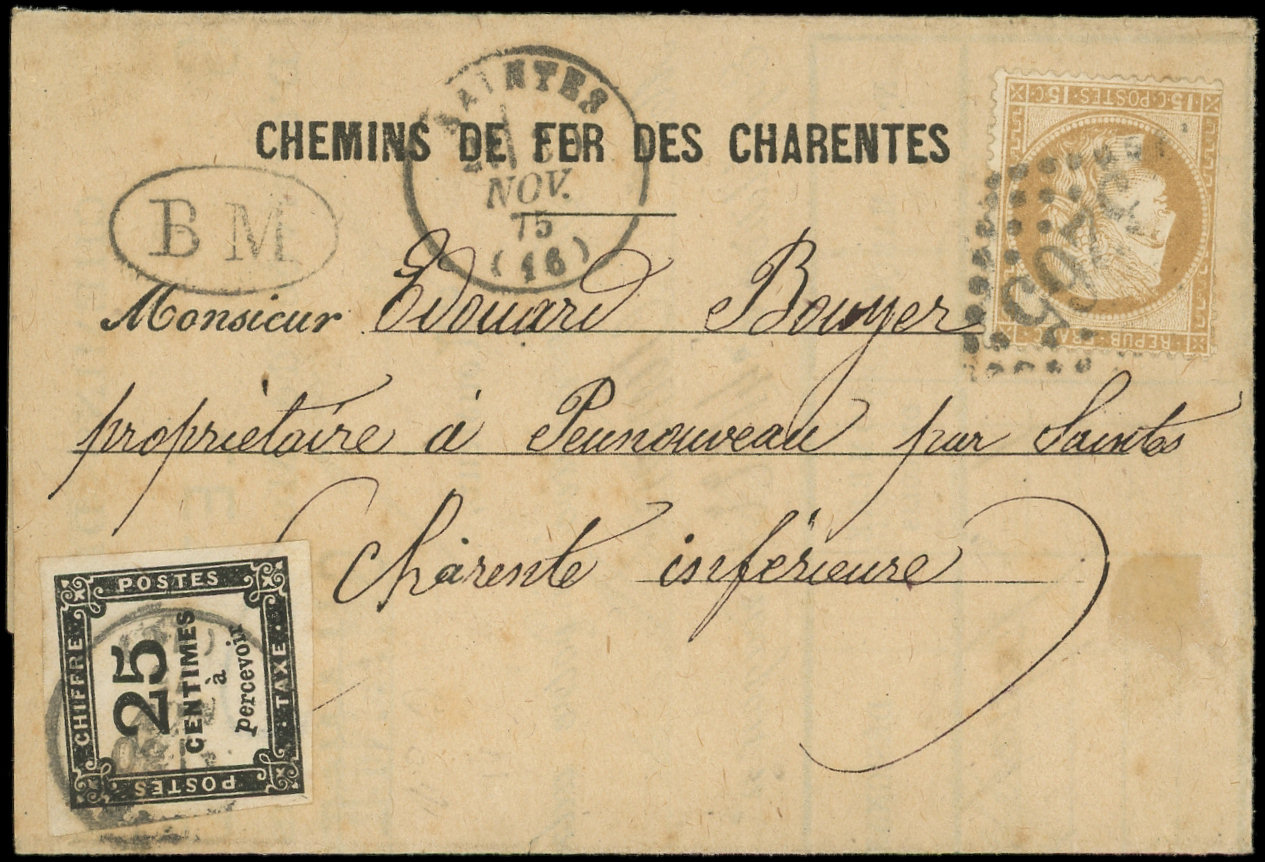 SAINTES
CHEMINS DE FER DES CHARENTES
NOV.
75
(16)
B M
15 c. POSTES 15 c.
REPUB
Monsieur Edouard Bouyer
propriétaire à Peunouveau par Saintes
Charente inférieure
POSTES
CHIFFRE
25
CENTIMES
à
percevoir
TAXE
POSTES